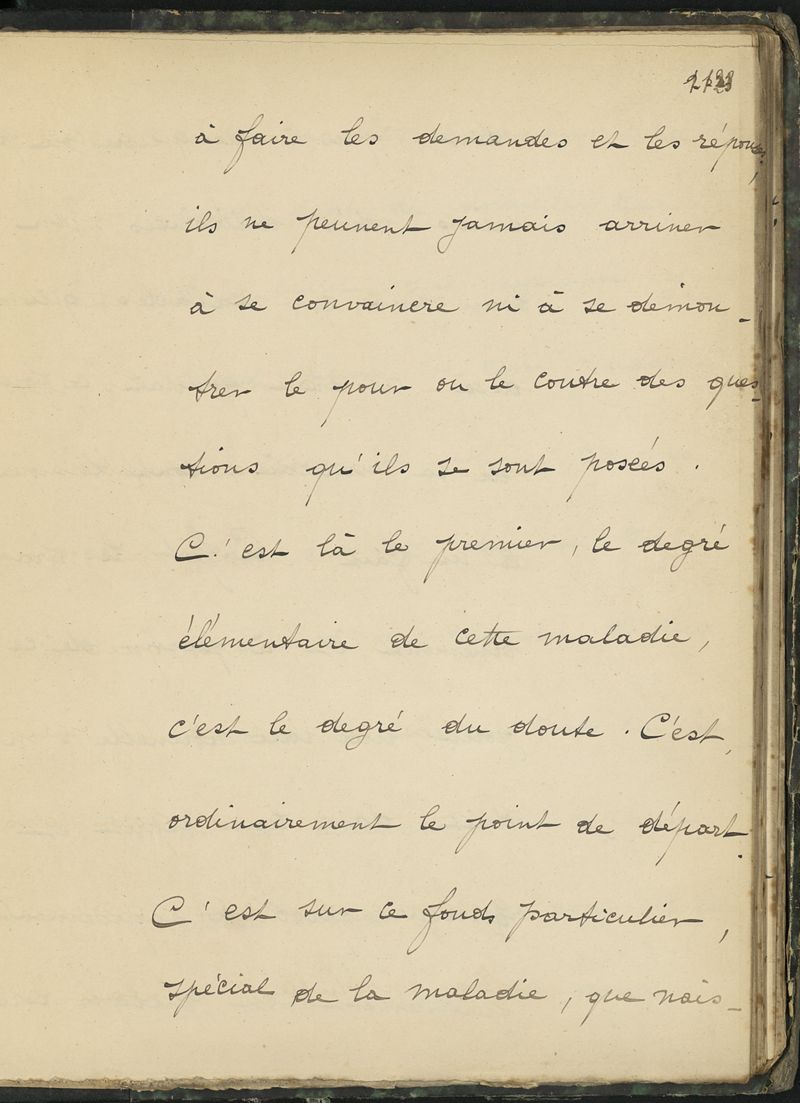 à faire les demandes et les réponses,
ils ne peuvent jamais arriver
à se convaincre ni à se démon-
trer le pour ou le contre des ques-
tions qu'ils se sont posées.
C'est là le premier, le degré
élémentaire de cette maladie,
c'est le degré du doute. C'est,
ordinairement le point de départ.
C'est sur ce fonds particulier,
spécial de la maladie, que nais-